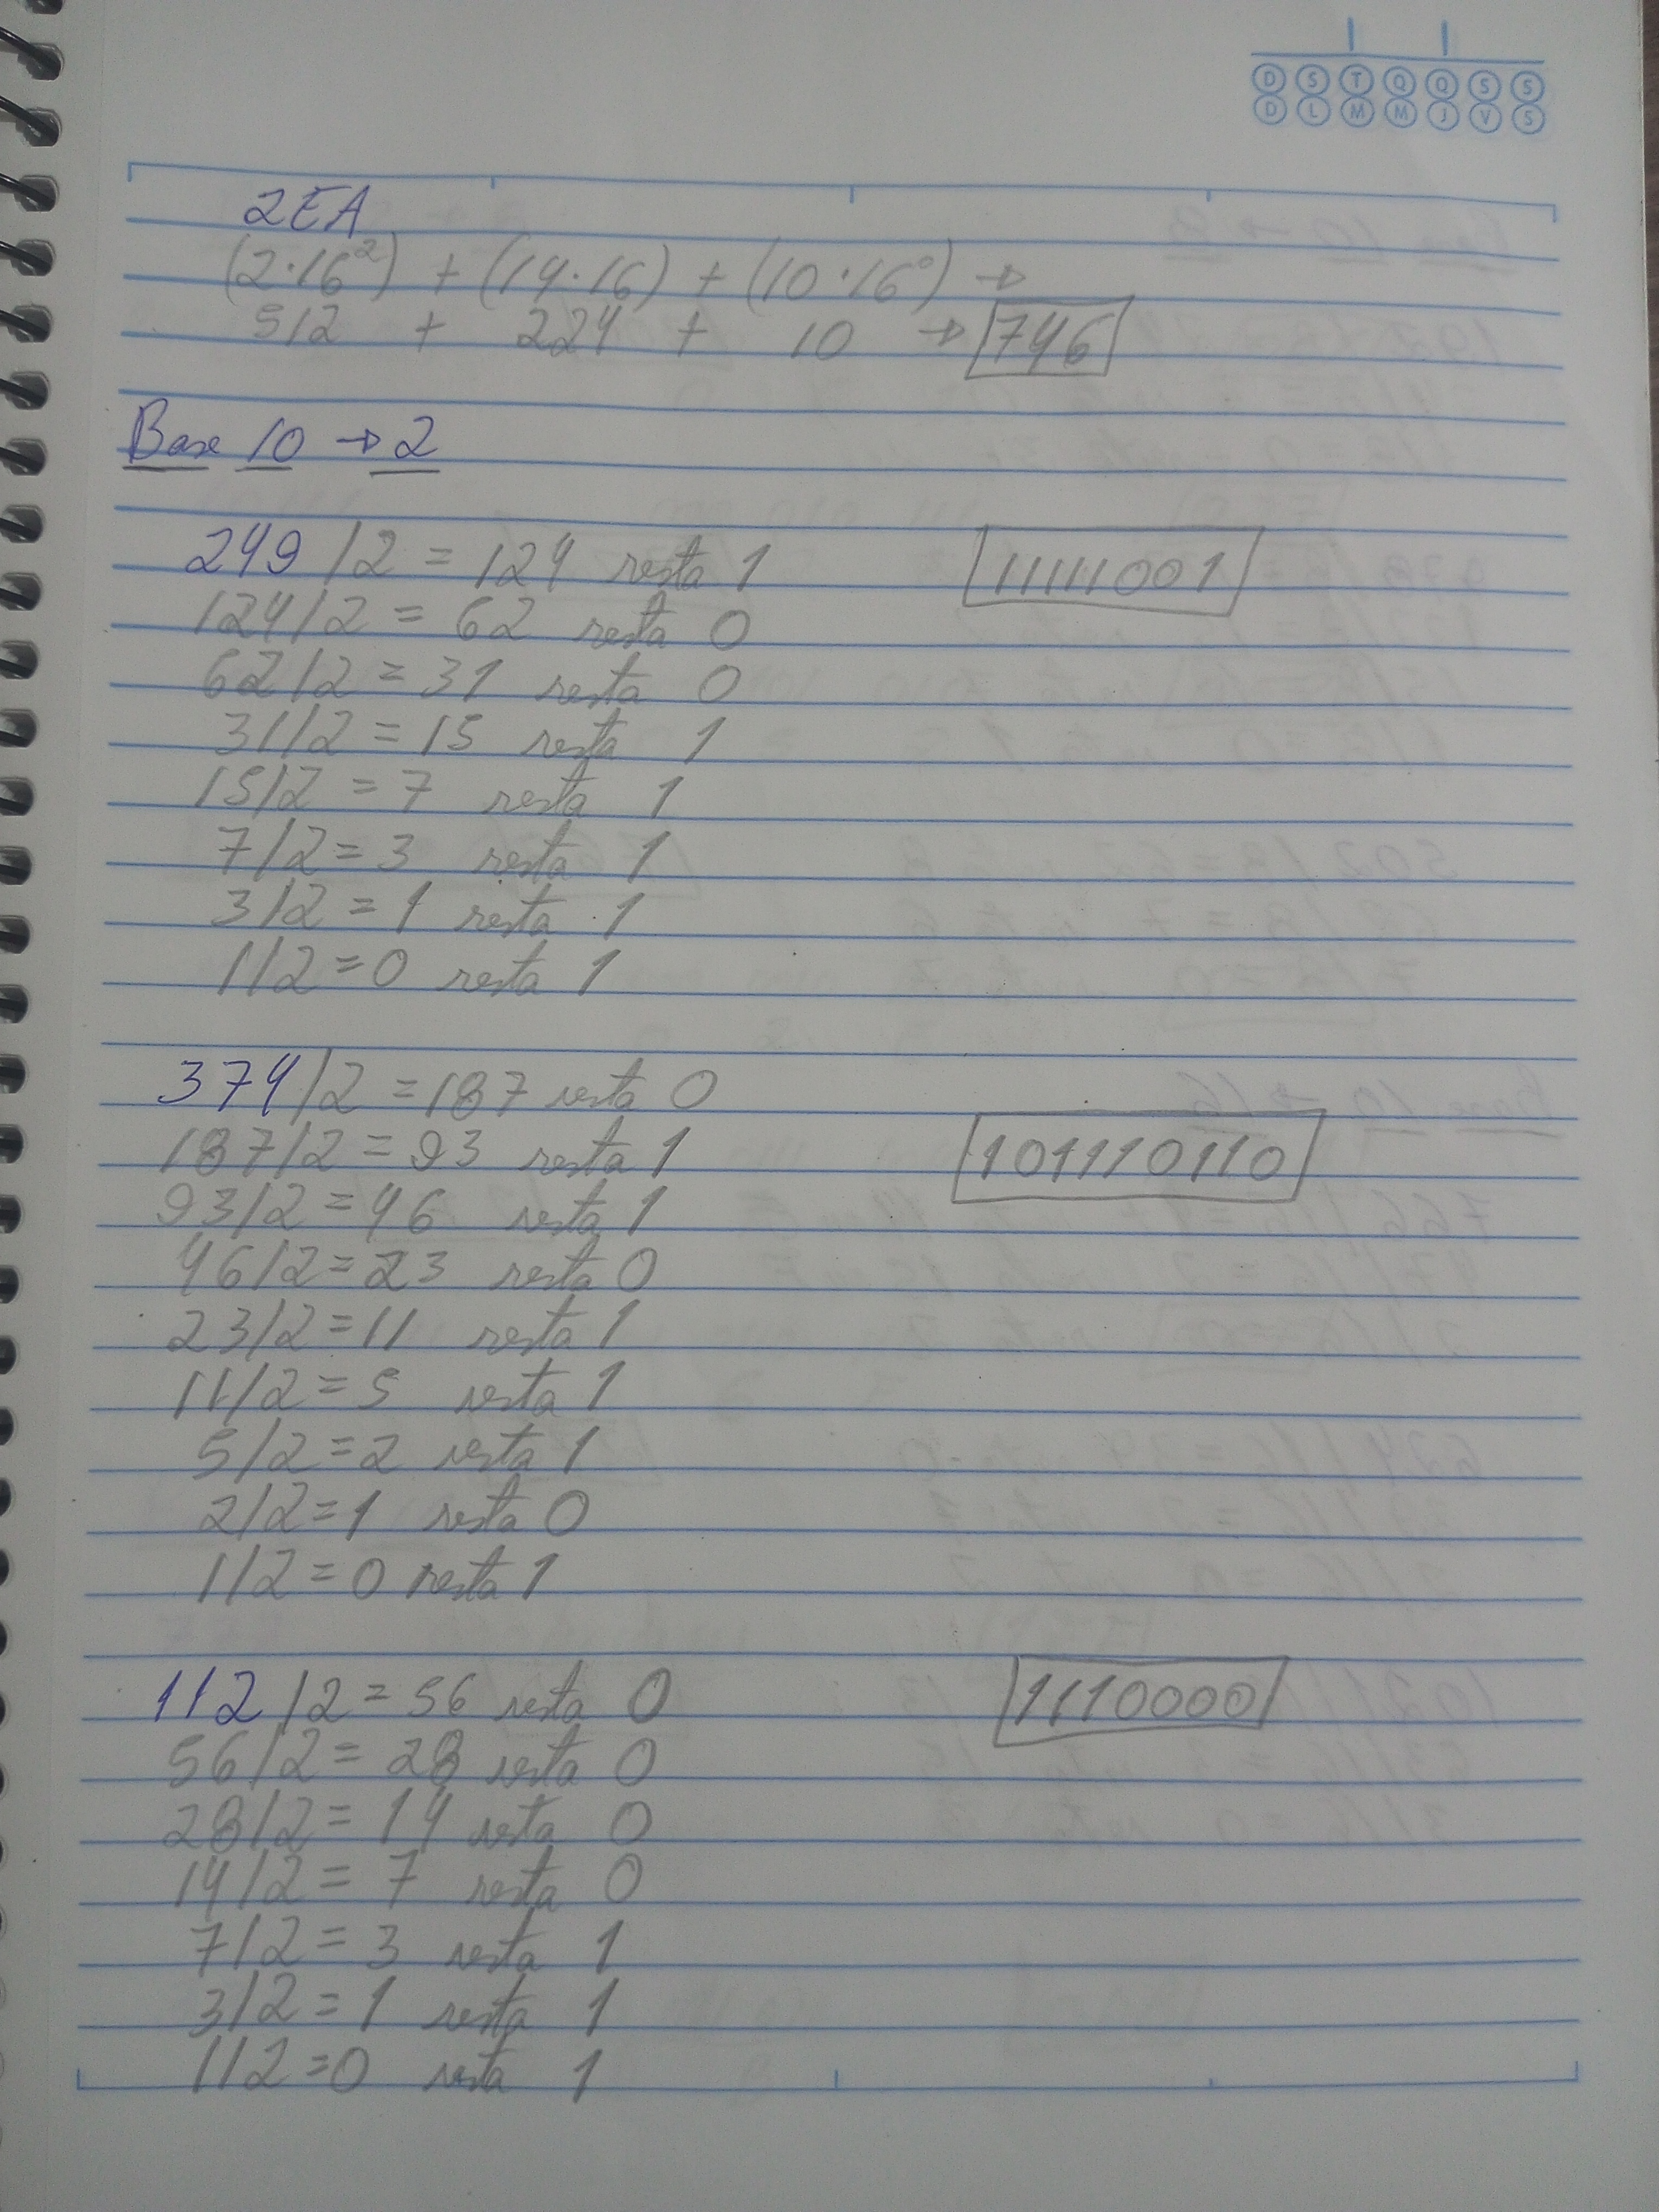 D S T Q Q S S
D L M M J V S
2EA
(2·16²) + (14·16) + (10·16⁰) →
512 + 224 + 10 → 746
Base 10 → 2
249/2 = 124 resta 1 11111001
124/2 = 62 resta 0
62/2 = 31 resta 0
31/2 = 15 resta 1
15/2 = 7 resta 1
7/2 = 3 resta 1
3/2 = 1 resta 1
1/2 = 0 resta 1
374/2 = 187 resta 0
187/2 = 93 resta 1 101110110
93/2 = 46 resta 1
46/2 = 23 resta 0
23/2 = 11 resta 1
11/2 = 5 resta 1
5/2 = 2 resta 1
2/2 = 1 resta 0
1/2 = 0 resta 1
112/2 = 56 resta 0 1110000
56/2 = 28 resta 0
28/2 = 14 resta 0
14/2 = 7 resta 0
7/2 = 3 resta 1
3/2 = 1 resta 1
1/2 = 0 resta 1